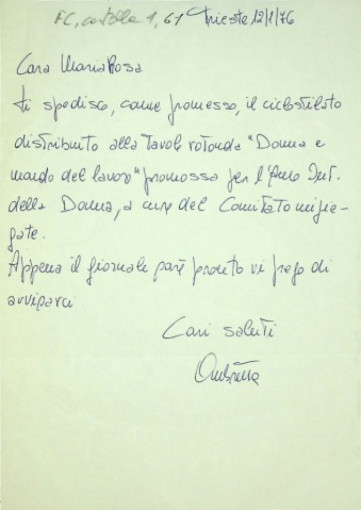 FC, cartella 1, 61 Trieste 12/1/76
Cara Maria Rosa
ti spedisco, come promesso, il ciclostilato
distribuito alla tavol rotonda "Donna e
mondo del lavoro" promossa per l'Anno Int.
della Donna, a cura del Comitato impie-
gate.
Appena il giornale sarà pronto vi prego di
avvisarci
Cari saluti
Ombretta